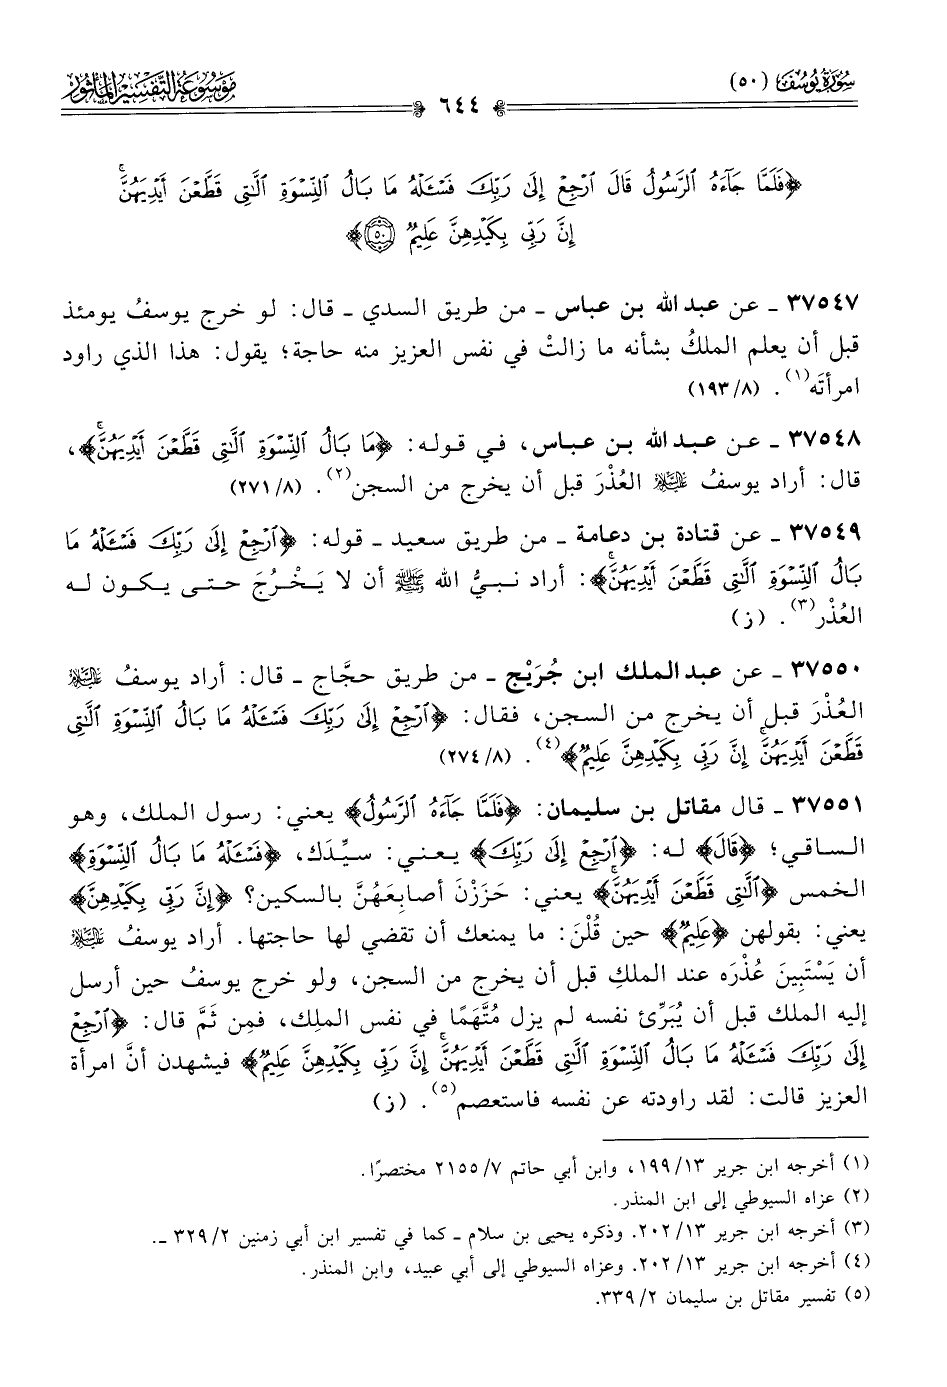 سُورَةُ يُوسُفَ (٥٠)
مَوْسُوعَةُ التَّفْسِيرِ المَأْثُورِ
٦٤٤
﴿فَلَمَّا جَآءَهُ ٱلرَّسُولُ قَالَ ٱرْجِعْ إِلَىٰ رَبِّكَ فَسْـَٔلْهُ مَا بَالُ ٱلنِّسْوَةِ ٱلَّـٰتِى قَطَّعْنَ أَيْدِيَهُنَّۚ
إِنَّ رَبِّى بِكَيْدِهِنَّ عَلِيمٌ ٥٠﴾
٣٧٥٤٧ ـ عن عبد الله بن عباس ـ من طريق السدي ـ قال: لو خرج يوسفُ يومئذ
قبل أن يعلم الملكُ بشأنه ما زالتْ في نفس العزيز منه حاجة؛ يقول: هذا الذي راود
امرأتَه(١). (٨/١٩٣)
٣٧٥٤٨ ـ عن عبد الله بن عباس، في قوله: ﴿مَا بَالُ ٱلنِّسْوَةِ ٱلَّـٰتِى قَطَّعْنَ أَيْدِيَهُنَّۚ﴾،
قال: أراد يوسفُ عليه السلام العُذْرَ قبل أن يخرج من السجن(٢). (٨/٢٧١)
٣٧٥٤٩ ـ عن قتادة بن دعامة ـ من طريق سعيد ـ قوله: ﴿ٱرْجِعْ إِلَىٰ رَبِّكَ فَسْـَٔلْهُ مَا
بَالُ ٱلنِّسْوَةِ ٱلَّـٰتِى قَطَّعْنَ أَيْدِيَهُنَّۚ﴾: أراد نبيُّ الله ﷺ أن لا يَخْرُجَ حتى يكون له
العُذْر(٣). (ز)
٣٧٥٥٠ ـ عن عبد الملك ابن جُرَيْج ـ من طريق حجَّاج ـ قال: أراد يوسفُ عليه السلام
العُذْرَ قبل أن يخرج من السجن، فقال: ﴿ٱرْجِعْ إِلَىٰ رَبِّكَ فَسْـَٔلْهُ مَا بَالُ ٱلنِّسْوَةِ ٱلَّـٰتِى
قَطَّعْنَ أَيْدِيَهُنَّۚ إِنَّ رَبِّى بِكَيْدِهِنَّ عَلِيمٌ﴾(٤). (٨/٢٧٤)
٣٧٥٥١ ـ قال مقاتل بن سليمان: ﴿فَلَمَّا جَآءَهُ ٱلرَّسُولُ﴾ يعني: رسول الملك، وهو
الساقي؛ ﴿قَالَ﴾ له: ﴿ٱرْجِعْ إِلَىٰ رَبِّكَ﴾ يعني: سيِّدك، ﴿فَسْـَٔلْهُ مَا بَالُ ٱلنِّسْوَةِ﴾
الخمس ﴿ٱلَّـٰتِى قَطَّعْنَ أَيْدِيَهُنَّۚ﴾ يعني: حَزَزْنَ أصابِعَهُنَّ بالسكين؟ ﴿إِنَّ رَبِّى بِكَيْدِهِنَّ﴾
يعني: بقولهن ﴿عَلِيمٌ﴾ حين قُلْنَ: ما يمنعك أن تقضي لها حاجتها. أراد يوسفُ عليه السلام
أن يَسْتَبِينَ عُذْرَه عند الملكِ قبل أن يخرج من السجن، ولو خرج يوسفُ حين أرسل
إليه الملك قبل أن يُبَرِّئ نفسه لم يزل مُتَّهَمًا في نفس الملِك، فمِن ثَمَّ قال: ﴿ٱرْجِعْ
إِلَىٰ رَبِّكَ فَسْـَٔلْهُ مَا بَالُ ٱلنِّسْوَةِ ٱلَّـٰتِى قَطَّعْنَ أَيْدِيَهُنَّۚ إِنَّ رَبِّى بِكَيْدِهِنَّ عَلِيمٌ﴾ فيشهدن أنَّ امرأة
العزيز قالت: لقد راودته عن نفسه فاستعصم(٥). (ز)
(١) أخرجه ابن جرير ١٣/١٩٩، وابن أبي حاتم ٧/٢١٥٥ مختصرًا.
(٢) عزاه السيوطي إلى ابن المنذر.
(٣) أخرجه ابن جرير ١٣/٢٠٢. وذكره يحيى بن سلام ـ كما في تفسير ابن أبي زمنين ٢/٣٢٩ ـ.
(٤) أخرجه ابن جرير ١٣/٢٠٢. وعزاه السيوطي إلى أبي عبيد، وابن المنذر.
(٥) تفسير مقاتل بن سليمان ٢/٣٣٩.